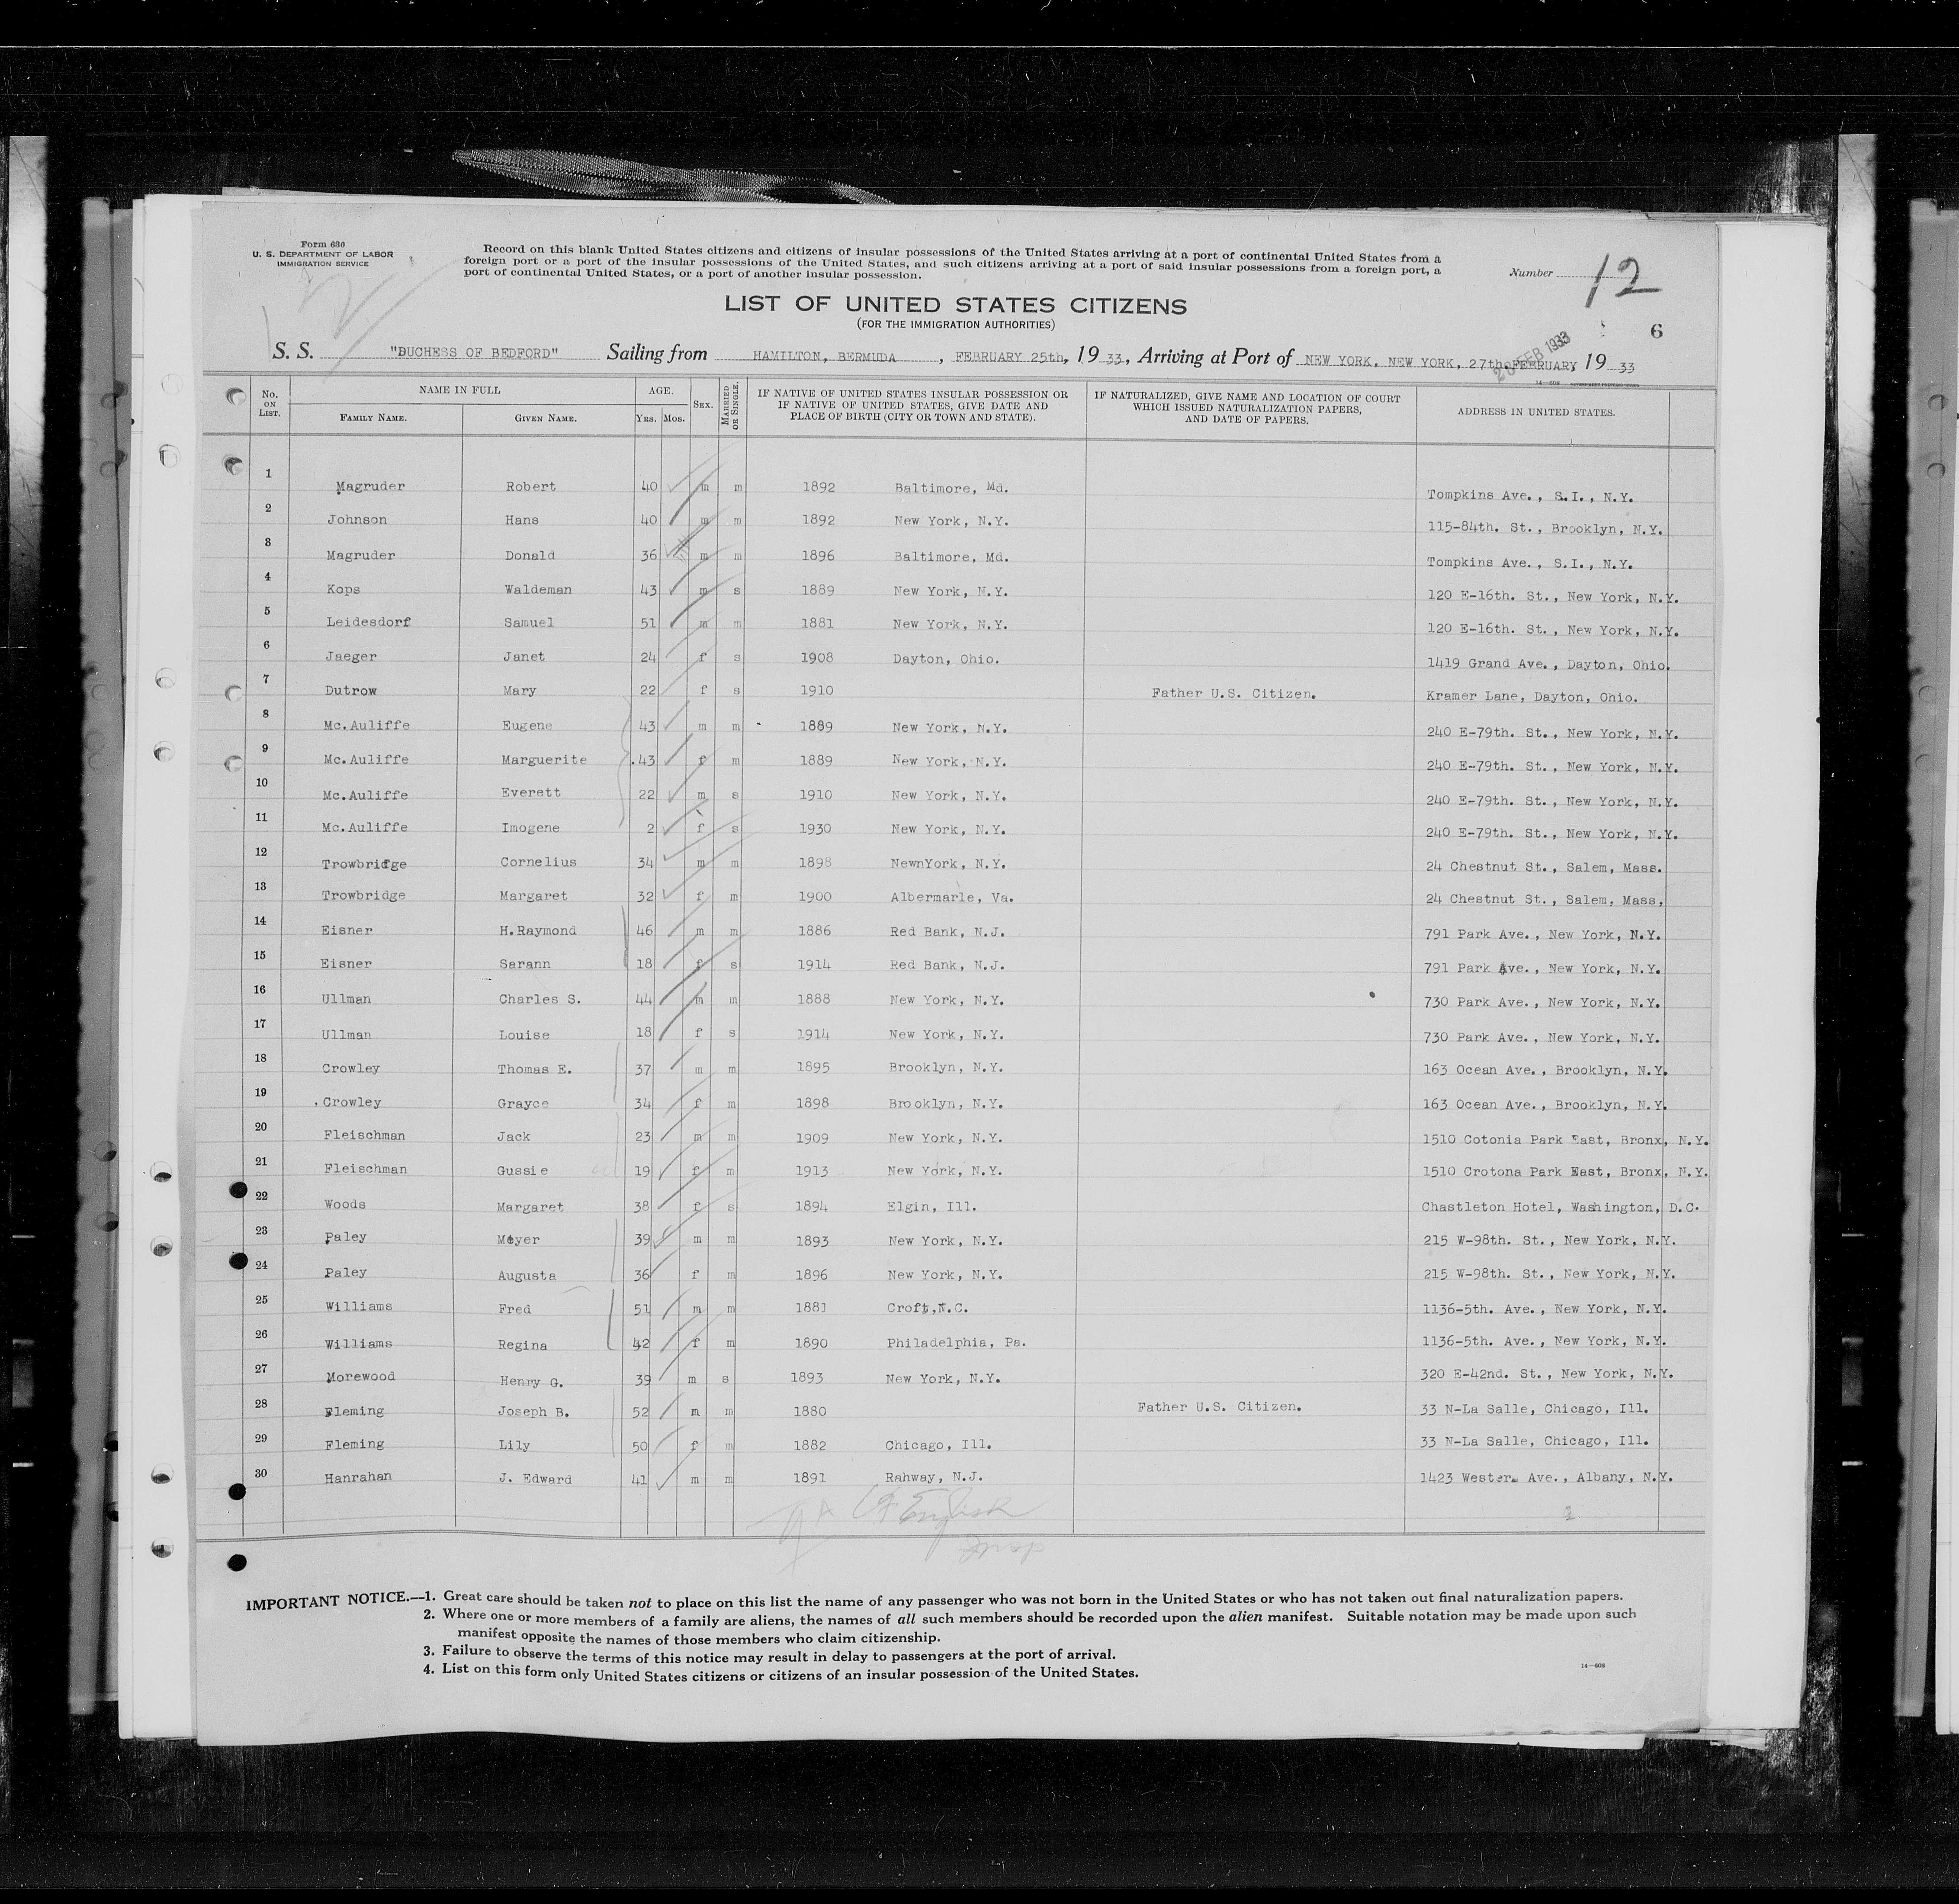 Form 630
U. S. DEPARTMENT OF LABOR
IMMIGRATION SERVICE
Record on this blank United States citizens and citizens of insular possessions of the United States arriving at a port of continental United States from a
foreign port or a port of the insular possessions of the United States, and such citizens arriving at a port of said insular possessions from a foreign port, a
port of continental United States, or a port of another insular possession.
Number 12
LIST OF UNITED STATES CITIZENS
(FOR THE IMMIGRATION AUTHORITIES)
6
28 FEB 1933
S. S. "DUCHESS OF BEDFORD" Sailing from HAMILTON, BERMUDA, FEBRUARY 25th, 19 33, Arriving at Port of NEW YORK, NEW YORK, 27th.FEBRUARY 19 33
14—608
No. ON LIST. NAME IN FULL FAMILY NAME. GIVEN NAME. AGE. YRS. MOS. SEX. MARRIED OR SINGLE. IF NATIVE OF UNITED STATES INSULAR POSSESSION OR IF NATIVE OF UNITED STATES, GIVE DATE AND PLACE OF BIRTH (CITY OR TOWN AND STATE). IF NATURALIZED, GIVE NAME AND LOCATION OF COURT WHICH ISSUED NATURALIZATION PAPERS, AND DATE OF PAPERS. ADDRESS IN UNITED STATES.
1 Magruder Robert 40 m m 1892 Baltimore, Md. Tompkins Ave., S.I., N.Y.
2 Johnson Hans 40 m m 1892 New York, N.Y. 115-84th. St., Brooklyn, N.Y.
3 Magruder Donald 36 m m 1896 Baltimore, Md. Tompkins Ave., S.I., N.Y.
4 Kops Waldeman 43 m s 1889 New York, N.Y. 120 E-16th. St., New York, N.Y.
5 Leidesdorf Samuel 51 m m 1881 New York, N.Y. 120 E-16th. St., New York, N.Y.
6 Jaeger Janet 24 f s 1908 Dayton, Ohio. 1419 Grand Ave., Dayton, Ohio.
7 Dutrow Mary 22 f s 1910 Father U.S. Citizen. Kramer Lane, Dayton, Ohio.
8 Mc.Auliffe Eugene 43 m m 1889 New York, N.Y. 240 E-79th. St., New York, N.Y.
9 Mc.Auliffe Marguerite 43 f m 1889 New York, N.Y. 240 E-79th. St., New York, N.Y.
10 Mc.Auliffe Everett 22 m s 1910 New York, N.Y. 240 E-79th. St., New York, N.Y.
11 Mc.Auliffe Imogene 2 f s 1930 New York, N.Y. 240 E-79th. St., New York, N.Y.
12 Trowbridge Cornelius 34 m m 1898 NewnYork, N.Y. 24 Chestnut St., Salem, Mass.
13 Trowbridge Margaret 32 f m 1900 Albermarle, Va. 24 Chestnut St., Salem, Mass,
14 Eisner H.Raymond 46 m m 1886 Red Bank, N.J. 791 Park Ave., New York, N.Y.
15 Eisner Sarann 18 f s 1914 Red Bank, N.J. 791 Park Ave., New York, N.Y.
16 Ullman Charles S. 44 m m 1888 New York, N.Y. 730 Park Ave., New York, N.Y.
17 Ullman Louise 18 f s 1914 New York, N.Y. 730 Park Ave., New York, N.Y.
18 Crowley Thomas E. 37 m m 1895 Brooklyn, N.Y. 163 Ocean Ave., Brooklyn, N.Y.
19 Crowley Grayce 34 f m 1898 Brooklyn, N.Y. 163 Ocean Ave., Brooklyn, N.Y.
20 Fleischman Jack 23 m m 1909 New York, N.Y. 1510 Cotonia Park East, Bronx, N.Y.
21 Fleischman Gussie 19 f m 1913 New York, N.Y. 1510 Crotona Park East, Bronx, N.Y.
22 Woods Margaret 38 f s 1894 Elgin, Ill. Chastleton Hotel, Washington, D.C.
23 Paley Meyer 39 m m 1893 New York, N.Y. 215 W-98th. St., New York, N.Y.
24 Paley Augusta 36 f m 1896 New York, N.Y. 215 W-98th. St., New York, N.Y.
25 Williams Fred 51 m m 1881 Croft,N.C. 1136-5th. Ave., New York, N.Y.
26 Williams Regina 42 f m 1890 Philadelphia, Pa. 1136-5th. Ave., New York, N.Y.
27 Morewood Henry G. 39 m s 1893 New York, N.Y. 320 E-42nd. St., New York, N.Y.
28 Fleming Joseph B. 52 m m 1880 Father U.S. Citizen. 33 N-La Salle, Chicago, Ill.
29 Fleming Lily 50 f m 1882 Chicago, Ill. 33 N-La Salle, Chicago, Ill.
30 Hanrahan J. Edward 41 m m 1891 Rahway, N.J. 1423 Western Ave., Albany, N.Y.
English
Insp
2
IMPORTANT NOTICE.—1. Great care should be taken not to place on this list the name of any passenger who was not born in the United States or who has not taken out final naturalization papers.
2. Where one or more members of a family are aliens, the names of all such members should be recorded upon the alien manifest. Suitable notation may be made upon such
manifest opposite the names of those members who claim citizenship.
3. Failure to observe the terms of this notice may result in delay to passengers at the port of arrival.
4. List on this form only United States citizens or citizens of an insular possession of the United States.
14—608